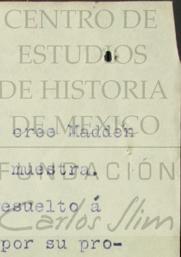 CENTRO DE
ESTUDIOS
DE HISTORIA
DE MEXICO
cree Madden
FUNDACIÓN
muestra.
esuelto á
Carlos Slim
por su pro-